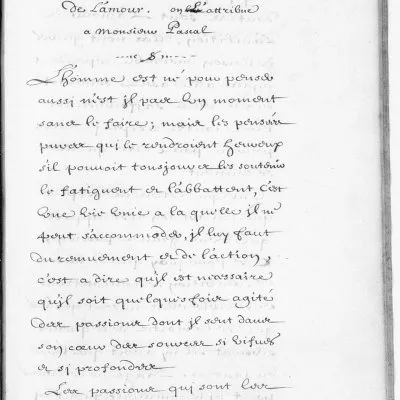 de L'amour. on L'attribue
a Monsieur Pascal
L'homme est né pour penser
aussi n'est jl pas Un moment
sans le faire; mais les pensées
pures qui le rendroient heureux
s'il pouvoit tousjours les soutenir
le fatiguent et l'abbattent, C'est
Une Vie Unie a la quelle jl ne
peut s'accommoder, jl luy faut
du remuement et de l'action;
c'est a dire qu'jl est necessaire
qu'jl soit quelques fois agité
des passions dont jl sent dans
son cœur des sources si Vifues
et si profondes
Les passions qui sont les